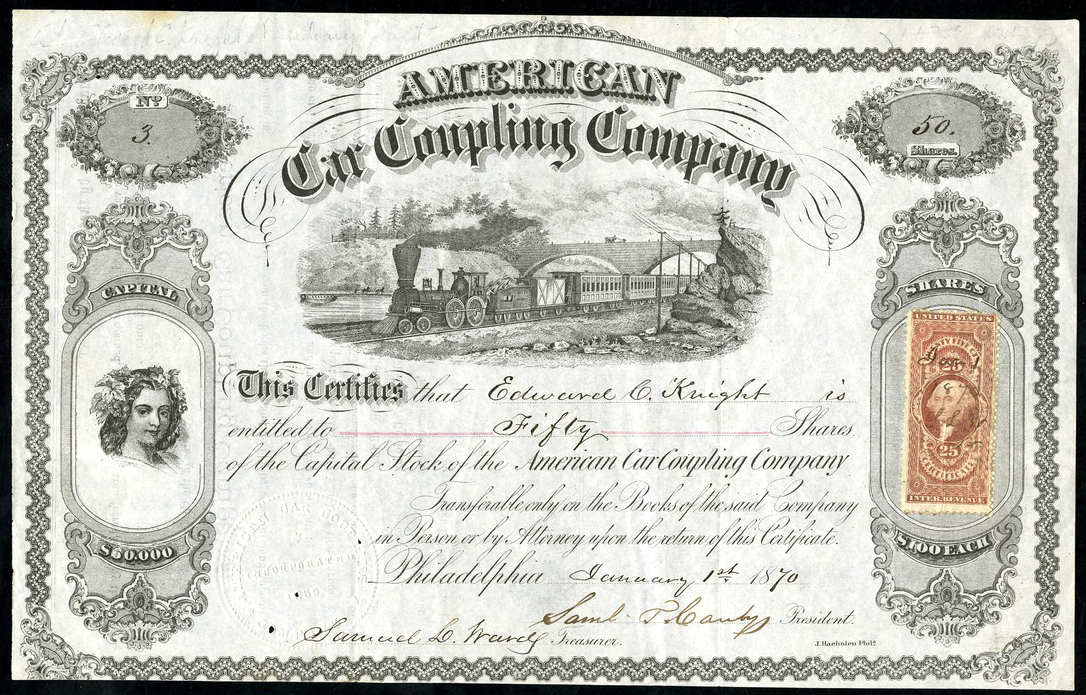 AMERICAN
Car Coupling Company
Nº
3.
50.
Shares.
CAPITAL
SHARES
UNITED STATES
25
25
CERTIFICATE
INTER. REVENUE
This Certifies that Edward C. Knight is
entitled to Fifty Shares
of the Capital Stock of the American Car Coupling Company
Transferable only on the Books of the said Company
in Person or by Attorney upon the return of this Certificate.
$60,000
$100 EACH
Philadelphia January 1st 1870
Saml. T. Canby President.
Samuel L. Ward Treasurer.
J. Haehnlen Phila